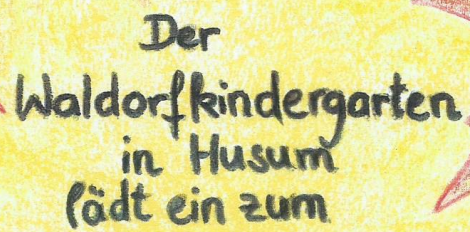 Der
Waldorfkindergarten
in Husum
lädt ein zum